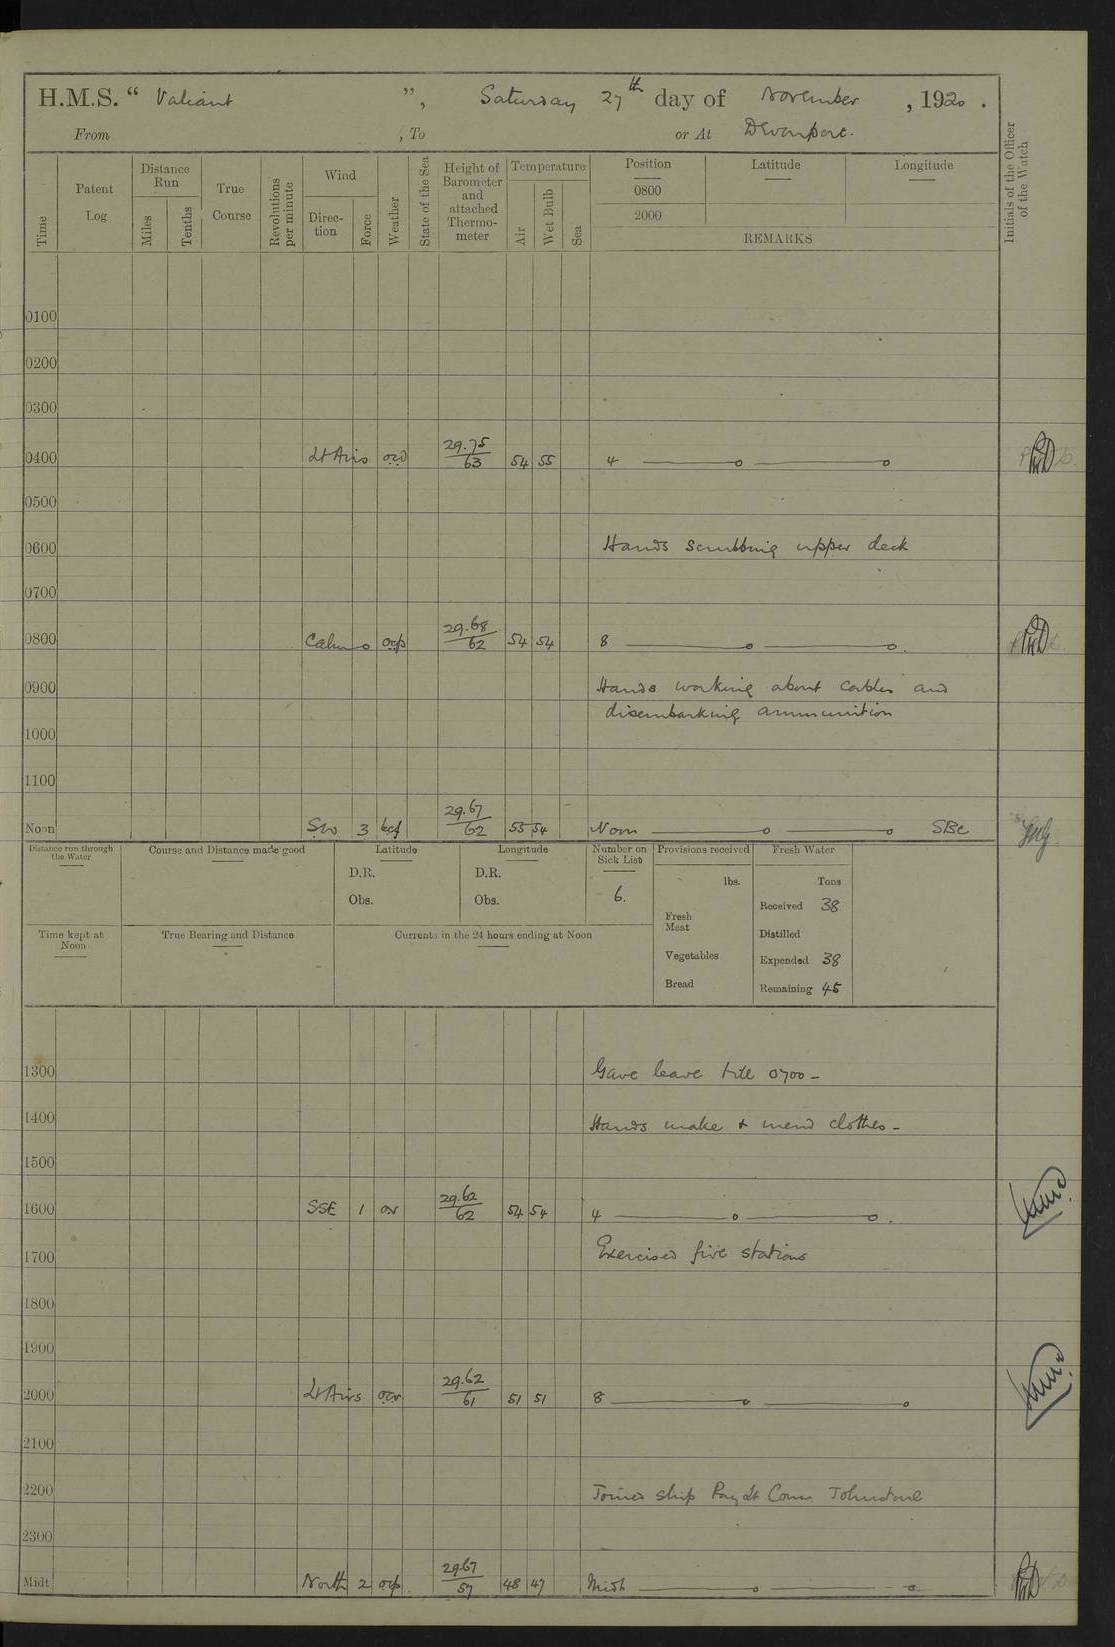 H.M.S. “ Valiant ”, Saturday 27th day of November , 1920 .
From , To or At Devonport.
Time Patent Log Distance Run Miles Tenths True Course Revolutions per minute Wind Direc-tion Force Weather State of the Sea Height of Barometer and attached Thermo-meter Temperature Air Wet Bulb Sea Position Latitude Longitude
0800
2000
REMARKS
Initials of the Officer of the Watch
0100
0200
0300
0400 Lt Airs 29.75/63 54 55 4
0500
0600 Hands scrubbing upper deck
0700
0800 Calm o ocp 29.68/62 54 54 8
0900 Hands working about cables and
disembarking ammunition
1000
1100
Noon SW 3 29.67/62 55 54 Noon SBC
Distance run through the Water Course and Distance made good Latitude Longitude Number on Sick List Provisions received Fresh Water
D.R. D.R. lbs. Tons
Obs. Obs. 6. Received 38
Fresh Meat Distilled
Time kept at Noon True Bearing and Distance Currents in the 24 hours ending at Noon Vegetables Expended 38
Bread Remaining 45
1300 Gave leave till 0700 –
1400 Hands make & mend clothes –
1500
1600 SSE 1 or 29.62/62 54 54 4
1700 Exercised fire stations
1800
1900
2000 Lt Airs ocr 29.62/61 51 51 8
2100
2200 Joined ship Pay Lt Comm Johnstone
2300
Midt North 2 ocp 29.67/57 48 47 Midt